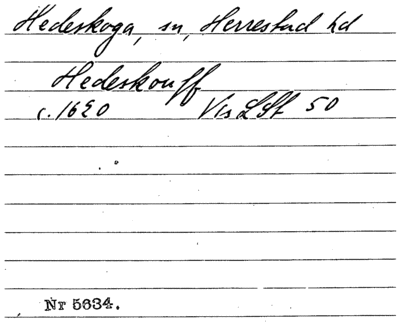 Hedeskoga, sn, Herrestad hd
Hedeskouff
c. 1620 Vis LSt 50
Nr 5634.